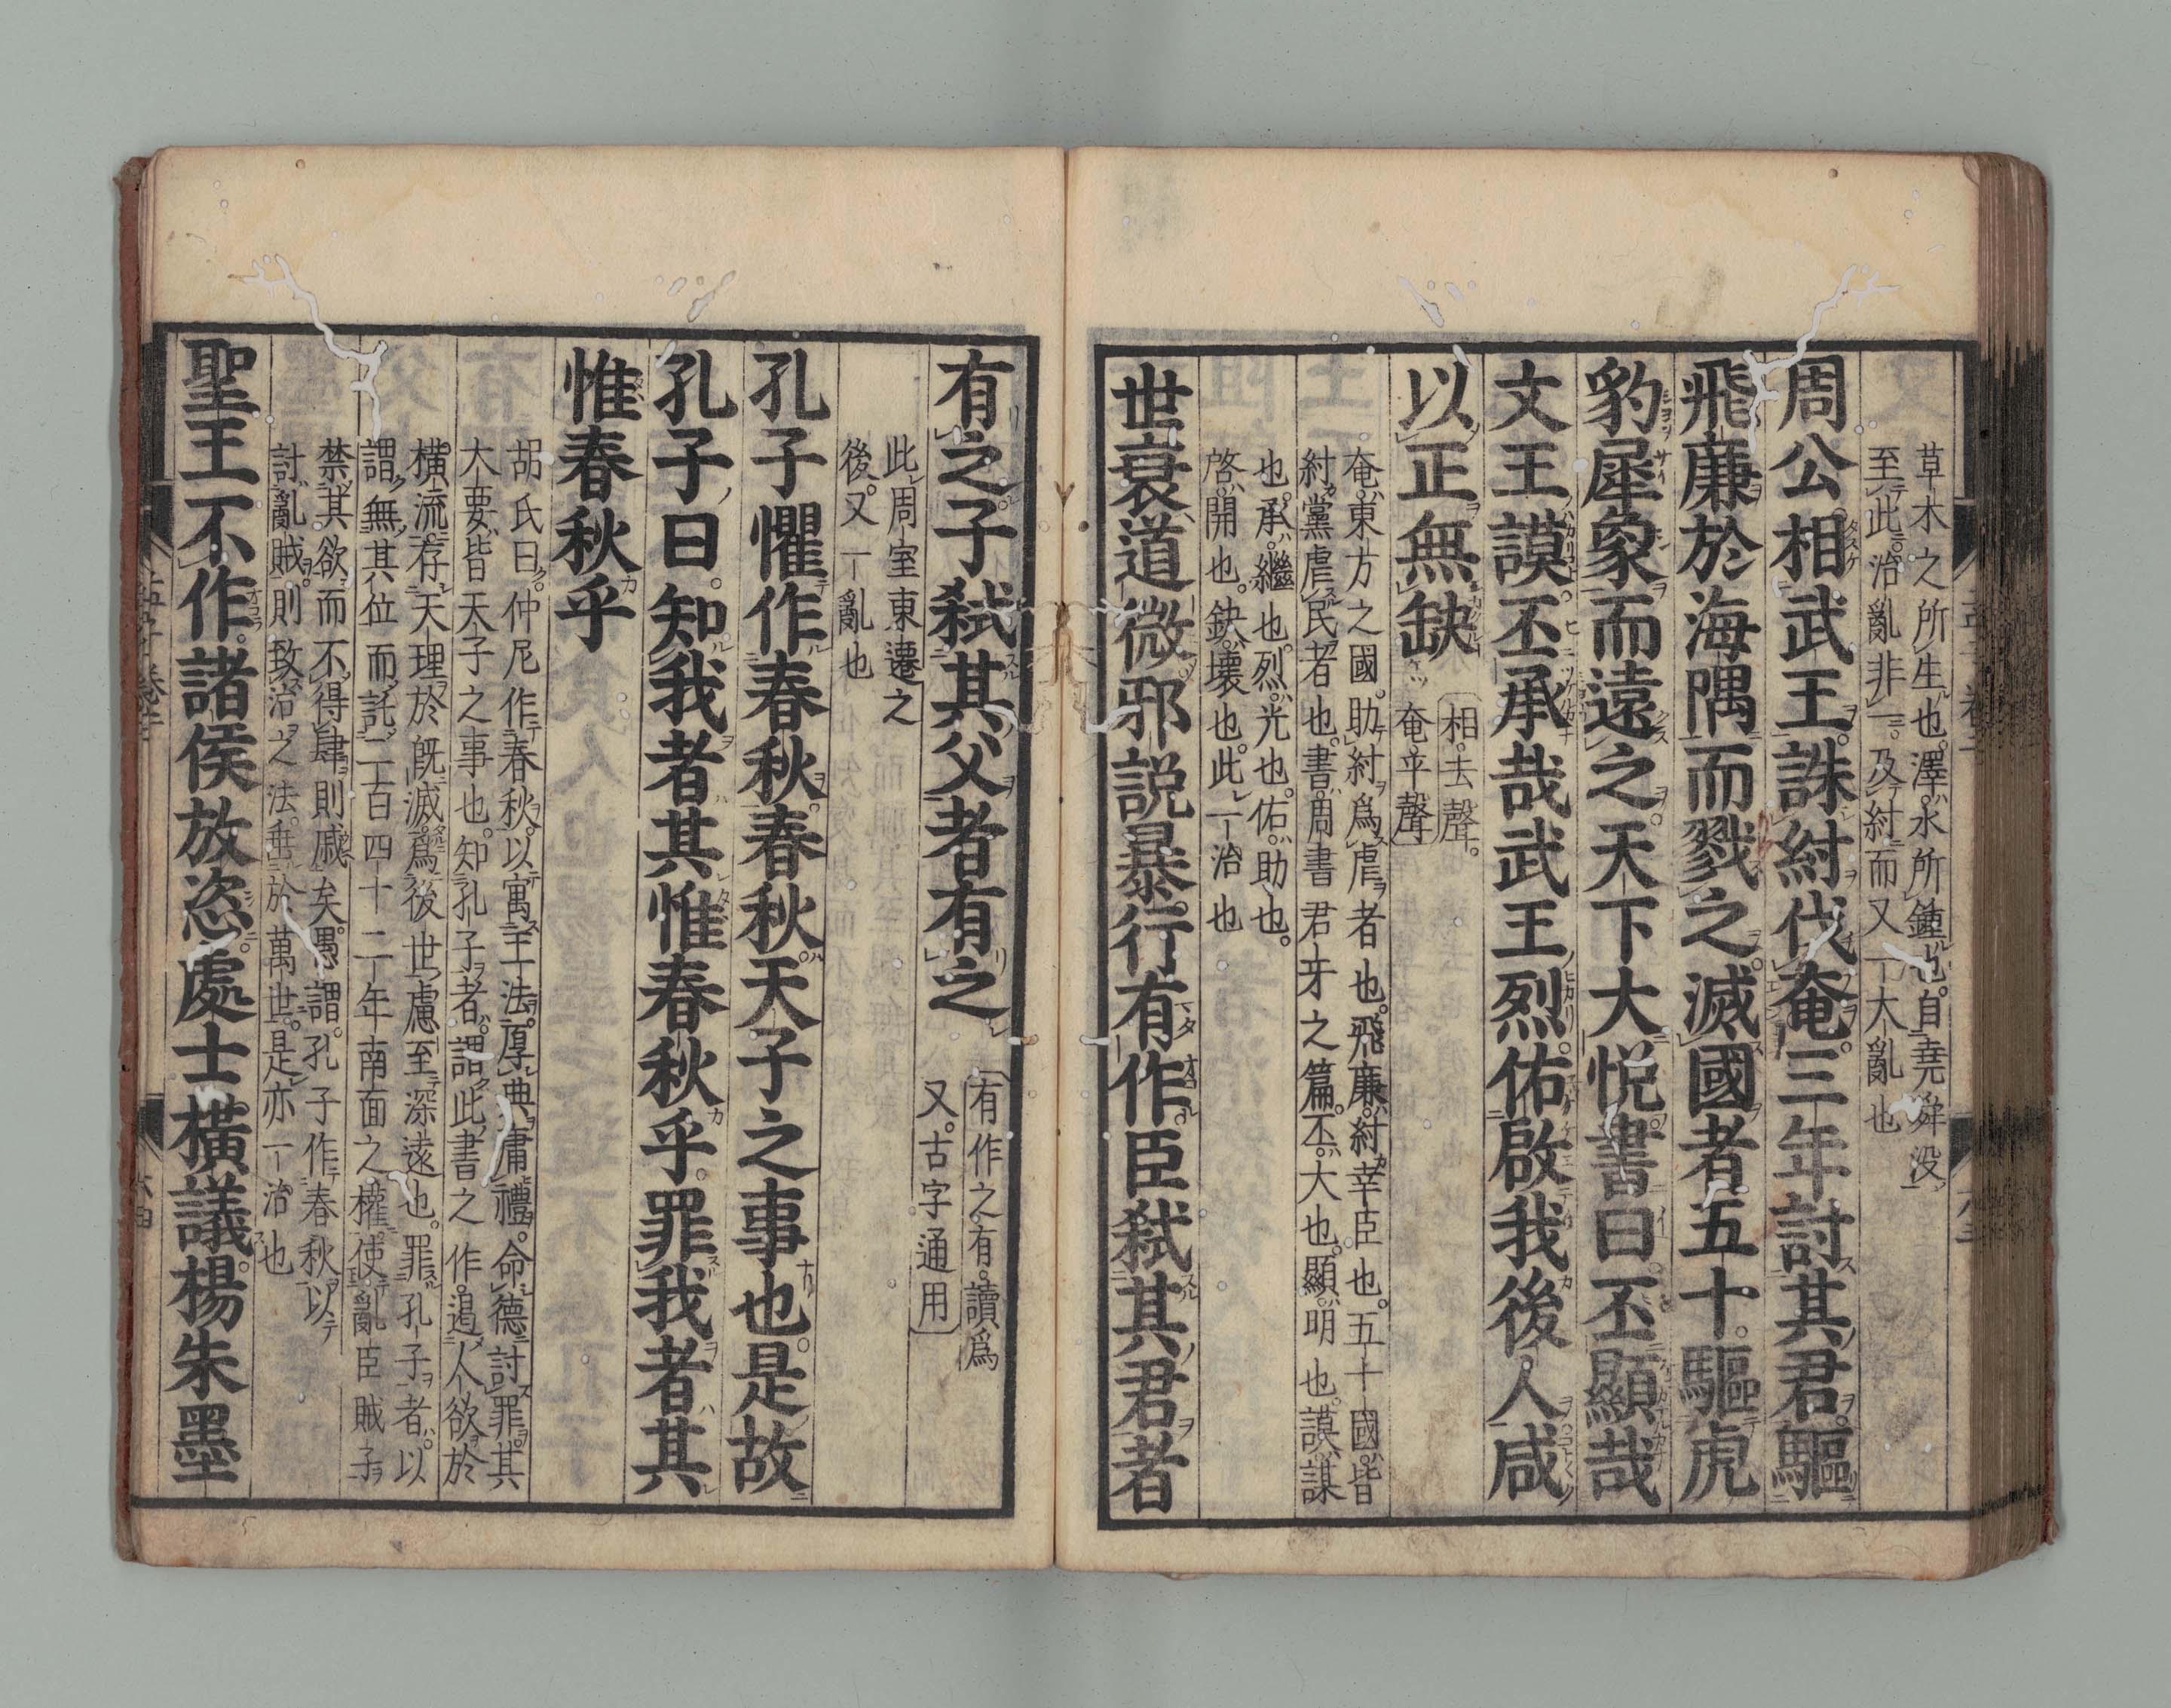 草木之所生也澤水所鍾也自堯舜没
至此治亂非一及紂而又一大亂也
周公相武王誅紂伐奄三年討其君驅
飛廉於海隅而戮之滅國者五十驅虎
豹犀象而遠之天下大悅書曰丕顯哉
文王謨丕承哉武王烈佑啟我後人咸
以正無缺
相去聲
奄平聲
奄東方之國助紂爲虐者也飛廉紂幸臣也五十國皆
紂黨虐民者也書周書君牙之篇丕大也顯明也謨謀
也承繼也烈光也佑助也
啓開也缺壞也此一治也
世衰道微邪説暴行有作臣弑其君者
有之子弑其父者有之
有作之有讀爲
又古字通用
此周室東遷之
後又一亂也
孔子懼作春秋春秋天子之事也是故
孔子曰知我者其惟春秋乎罪我者其
惟春秋乎
胡氏曰仲尼作春秋以寓王法厚典庸禮命德討罪其
大要皆天子之事也知孔子者謂此書之作遏人欲於
橫流存天理於既滅爲後世慮至深遠也罪孔子者以
謂無其位而託二百四十二年南面之權使亂臣賊子
禁其欲而不得肆則戚矣愚謂孔子作春秋以
討亂賊則致治之法垂於萬世是亦一治也
聖王不作諸侯放恣處士橫議楊朱墨